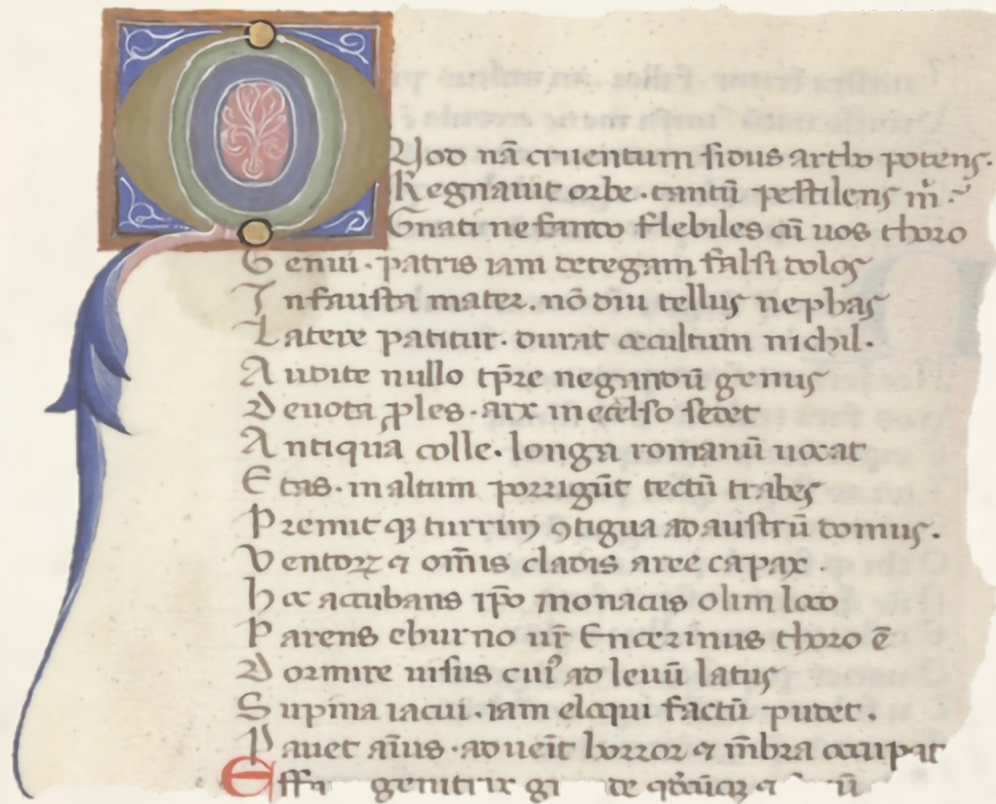 QVod nā cruentum sidus arcto potens.
Regnauit orbe. tantū pestilens m̄.
Gnati nefando flebiles cū uos thoro
Genui. patris iam detegam falsi dolos
Infausta mater. nō diu tellus nephas
Latere patitur. durat occultum nichil.
Audite nullo tp̄re negandū genus
Deuota ꝓles. arx in excelso sedet
Antiqua colle. longa romanū uocat
Etas. in altum porrigūt tectū trabes
Premit qꝫ turrim ꝯtigua ad austrū domus.
Ventoꝝ ⁊ om̄is cladis arce capax.
Hec accubans ip̄o monacus olim loco
Parens eburno ur̄ Encerinus thoro ē
Dormire uisus cuiꝰ ad leuū latus
Supina iacui. iam eloqui factū pudet.
Pauet aīus. aduenīt horror ⁊ m̄bra occupat
genitrix